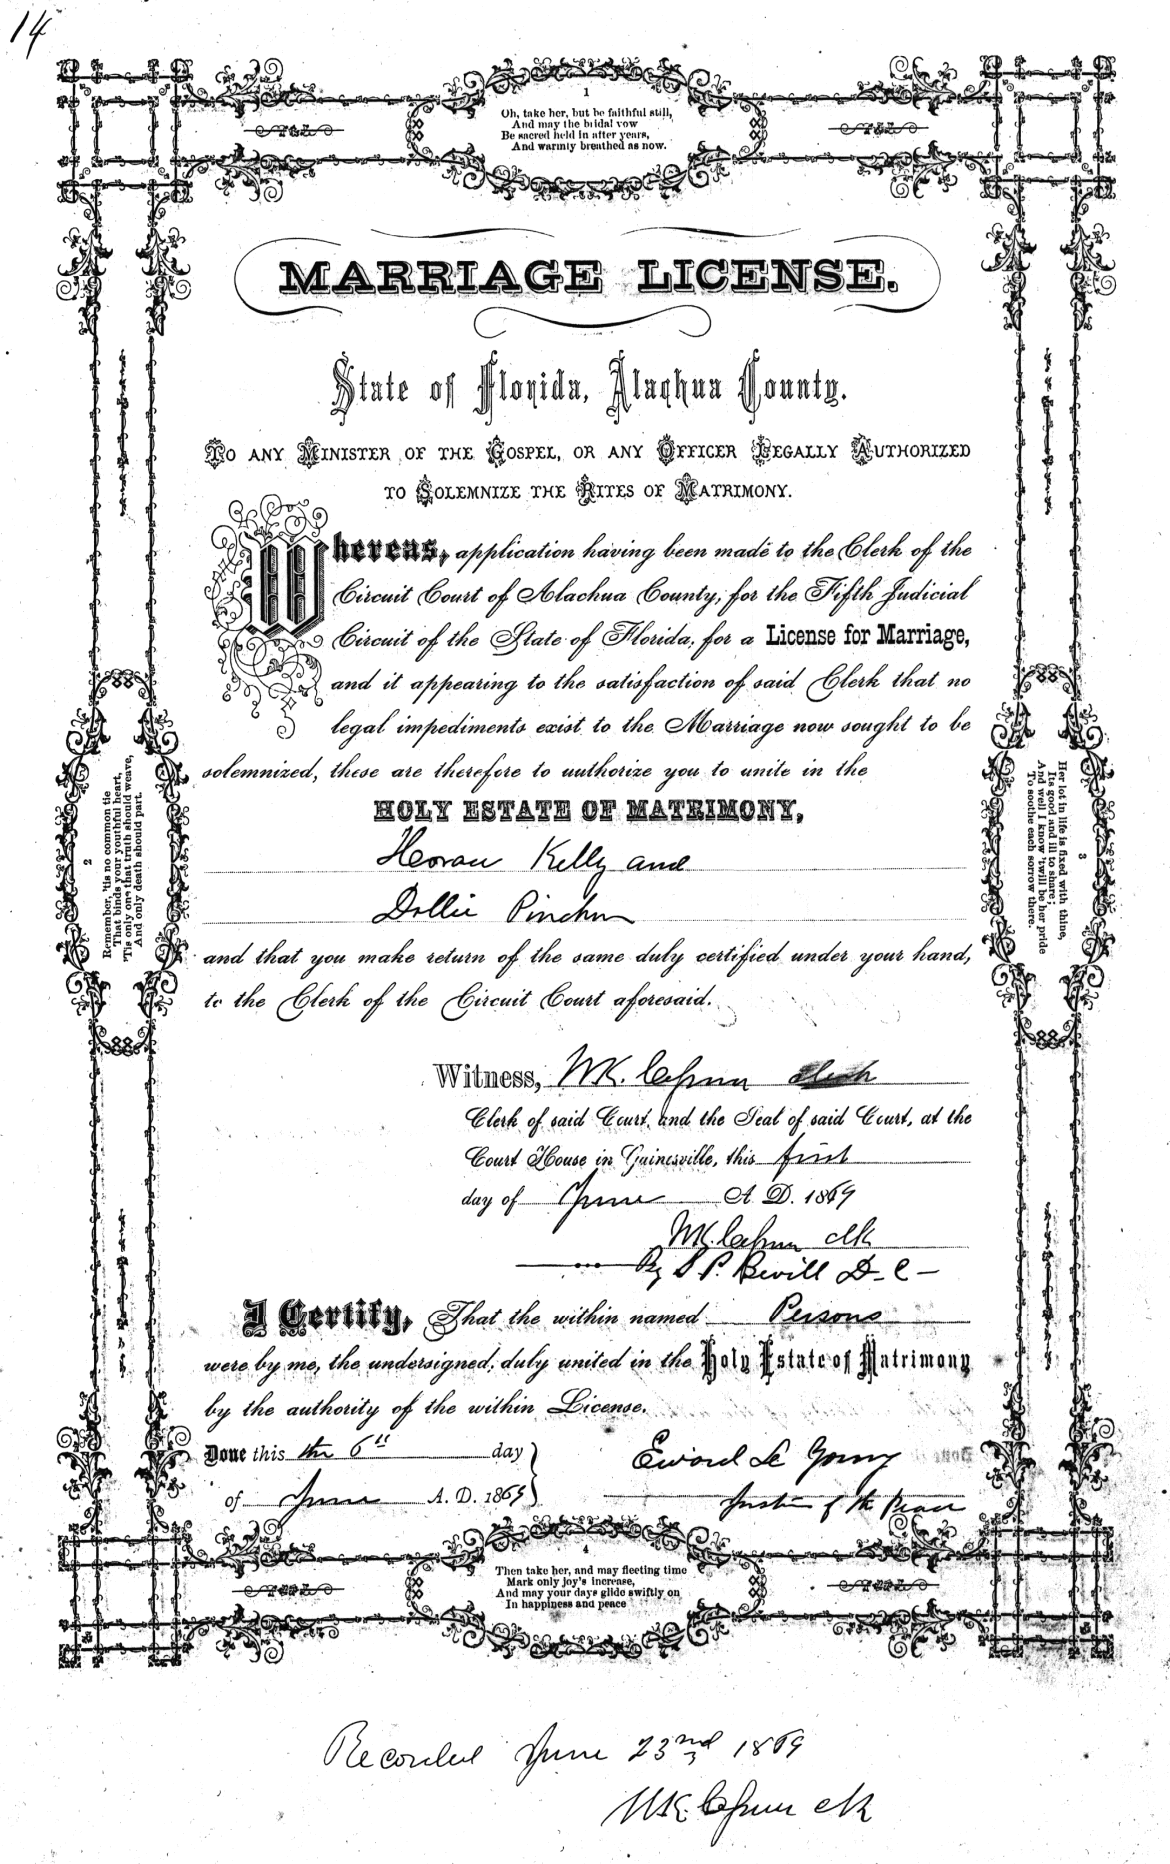 14
1
Oh, take her, but be faithful still,
And may the bridal vow
Be sacred held in after years,
And warmly breathed as now.
MARRIAGE LICENSE.
State of Florida, Alachua County.
TO ANY MINISTER OF THE GOSPEL, OR ANY OFFICER LEGALLY AUTHORIZED
TO SOLEMNIZE THE RITES OF MATRIMONY.
Whereas, application having been made to the Clerk of the
Circuit Court of Alachua County, for the Fifth Judicial
Circuit of the State of Florida, for a License for Marriage,
and it appearing to the satisfaction of said Clerk that no
legal impediments exist to the Marriage now sought to be
solemnized, these are therefore to authorize you to unite in the
HOLY ESTATE OF MATRIMONY,
Kelly and
Dollie
and that you make return of the same duly certified under your hand,
to the Clerk of the Circuit Court aforesaid.
2
Remember, 'tis no common tie
That binds your youthful heart,
'Tis only one that truth should weave,
And only death should part.
3
Her lot in life is fixed with thine,
Its good and ill to share;
And well I know 'twill be her pride
To soothe each sorrow there.
Witness, WK. Cessna Clerk
Clerk of said Court, and the Seal of said Court, at the
Court House in Gainesville, this first
day of June A. D. 1869
WK. Cessna clk
By S. P. Bevill D-C-
I Certify, That the within named Persons
were by me, the undersigned, duly united in the Holy Estate of Matrimony
by the authority of the within License.
Done this the 6th day
of June A. D. 1869
Justice of the Peace
4
Then take her, and may fleeting time
Mark only joy's increase,
And may your days glide swiftly on
In happiness and peace
Recorded June 23nd 1869
WK Cessna clk